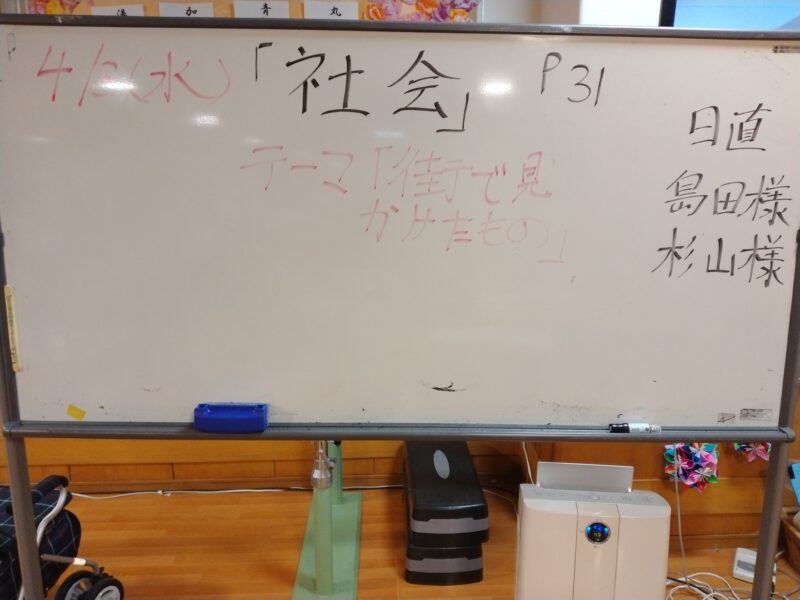 加 青 丸
4/2(水) 「社会」 P31
テーマ「街で見
かけたもの」
日直
島田様
杉山様